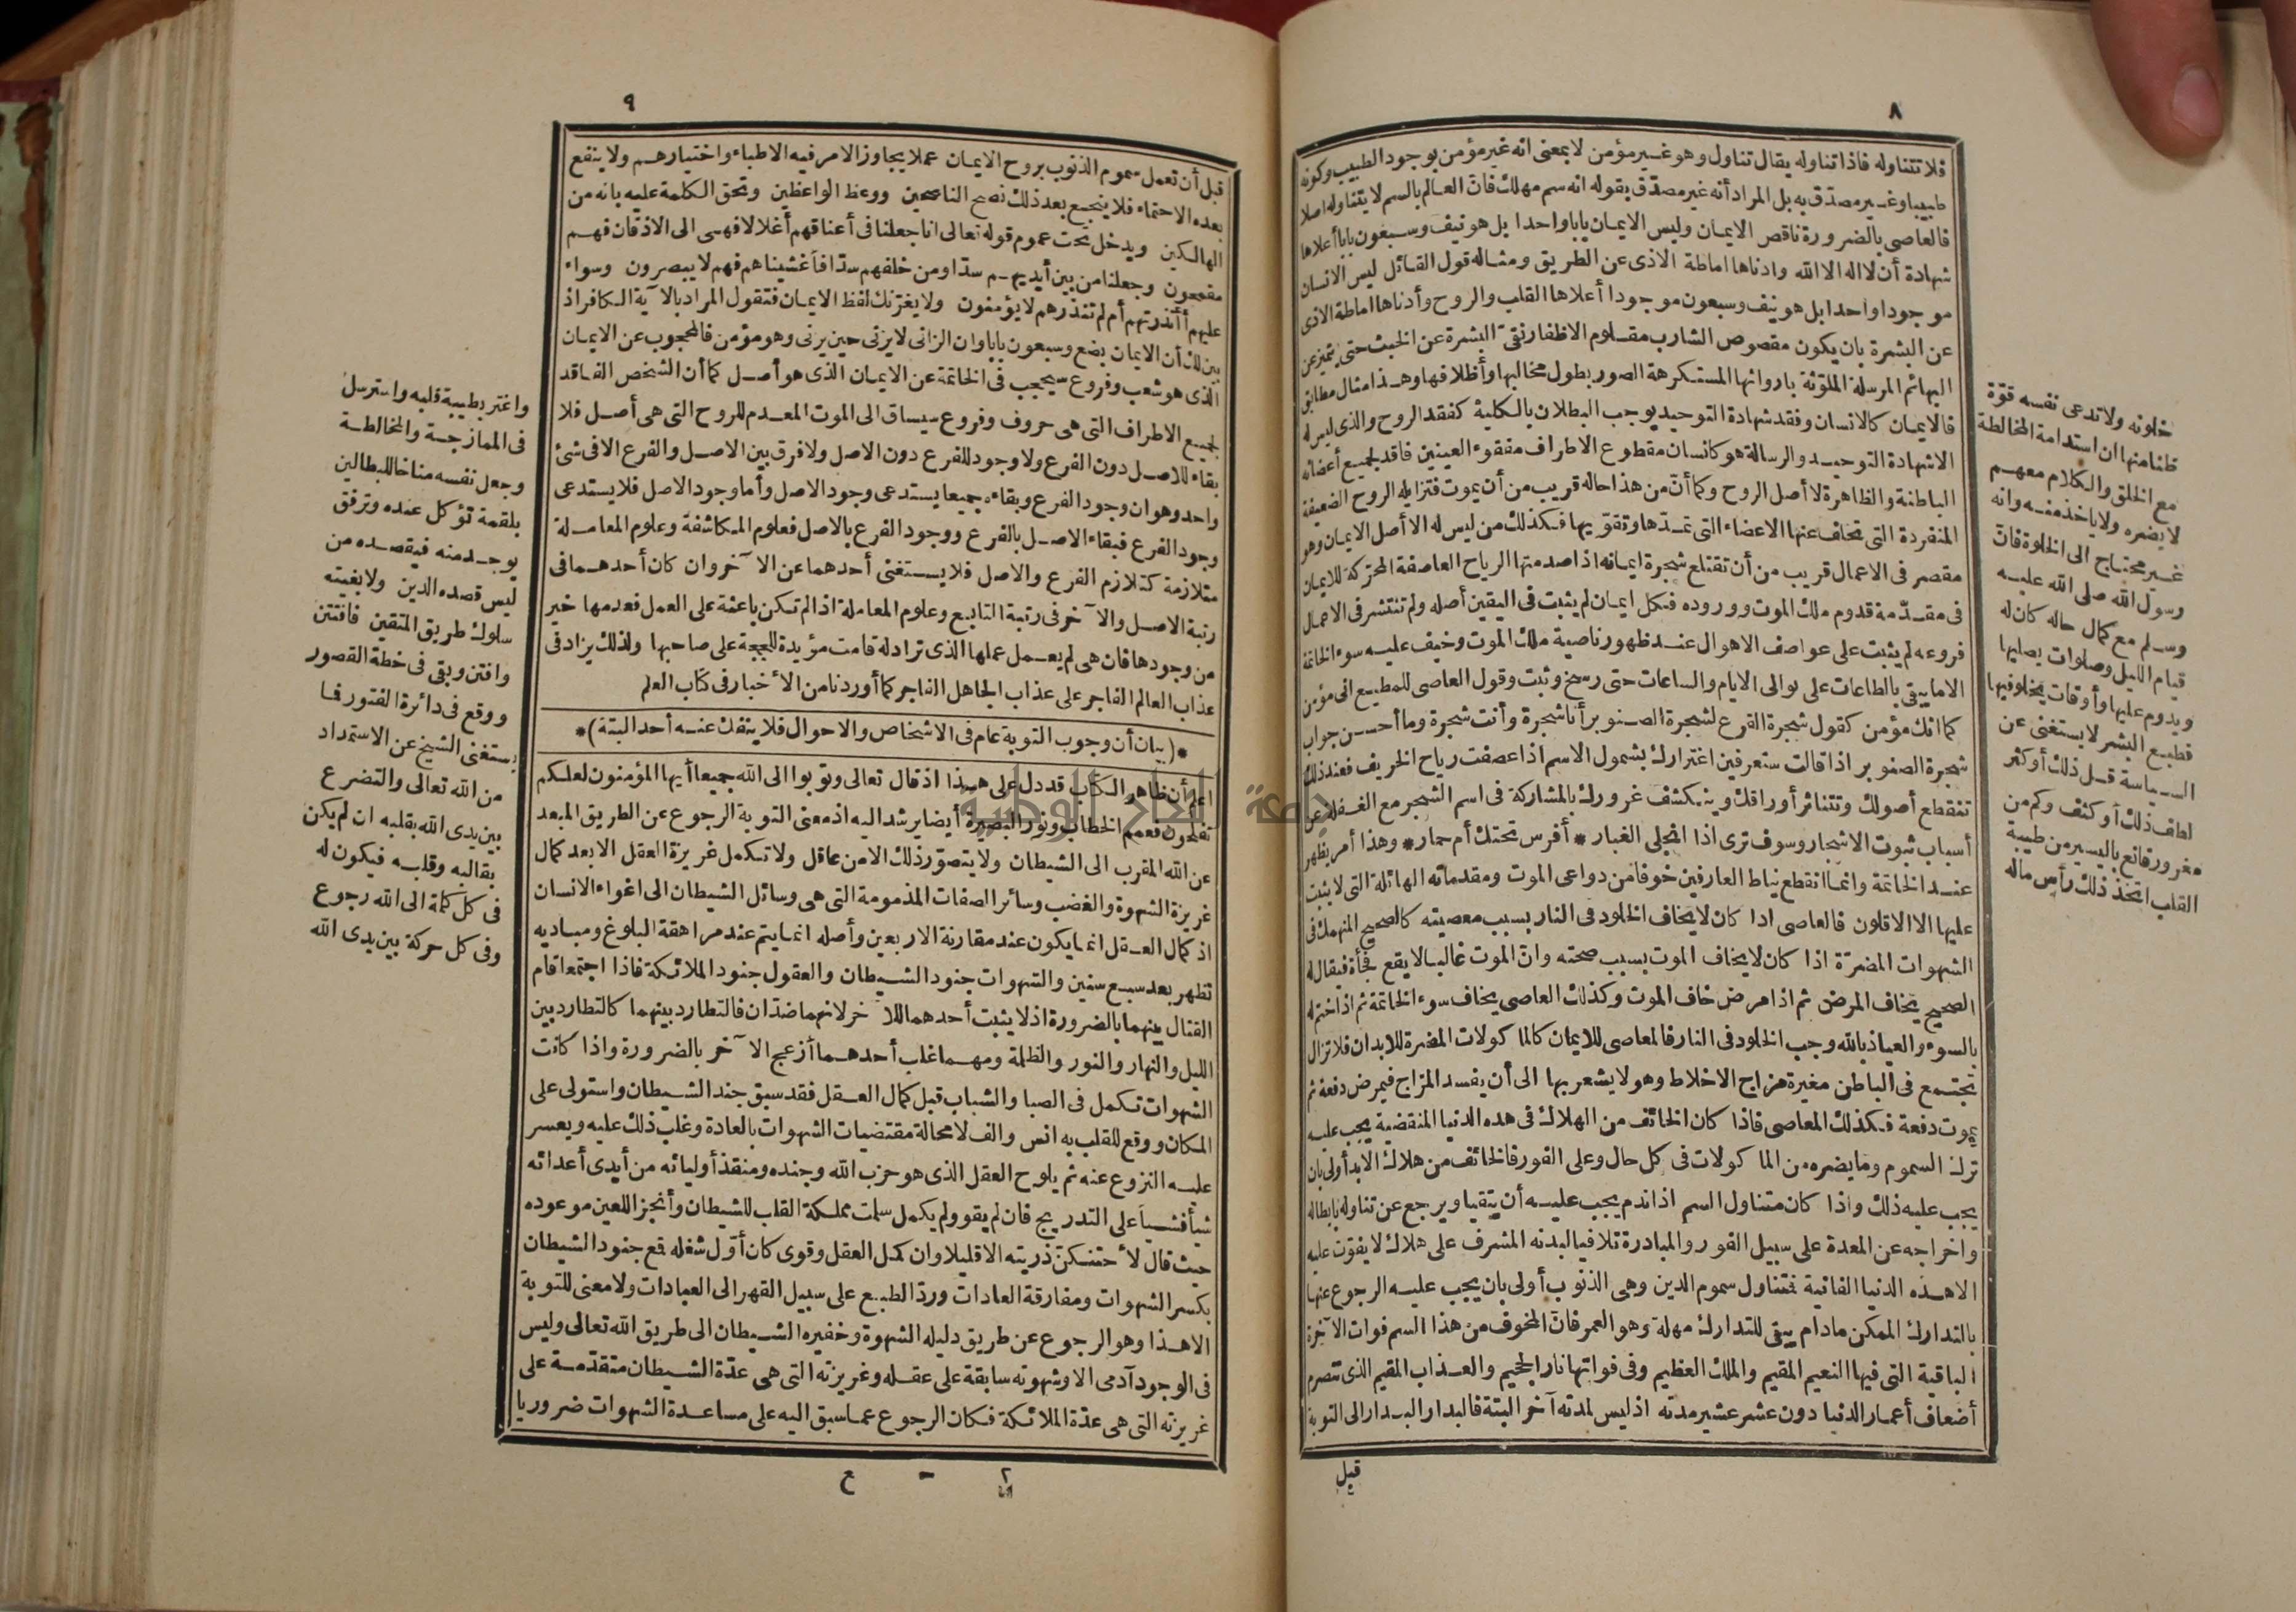 ٨
فلا تتناوله فاذا تناوله يقال تناول وهو غير مؤمن لا بمعنى انه غير مؤمن بوجود الطبيب وكونه
طبيبا وغير مصدّق به بل المراد أنه غير مصدّق بقوله انه سم مهلك فان العالم بالسم لا يتناوله اصلا
فالعاصي بالضرورة ناقص الايمان وليس الايمان بابا واحدا بل هو نيف وسبعون بابا أعلاها
شهادة أن لا اله الا الله وادناها اماطة الاذى عن الطريق ومثاله قول القائل ليس الانسان
موجودا واحدا بل هو نيف وسبعون موجودا أعلاها القلب والروح وأدناها اماطة الاذى
عن البشرة بان يكون مقصوص الشارب مقلوم الاظفار نقيّ البشرة عن الخبث حتى يتميز عن
البهائم المرسلة الملوّثة باروائها المستكرهة الصور بطول مخالبها وأظلافها وهذا مثال مطابق
فالايمان كالانسان وفقد شهادة التوحيد يوجب البطلان بالكلية كفقد الروح والذى ليس له
الا شهادة التوحيد والرسالة هو كانسان مقطوع الاطراف مفقوء العينين فاقد لجميع أعضائه
الباطنة والظاهرة لا أصل الروح وكما أنّ من هذا حاله قريب من أن يموت فتزايله الروح الضعيفة
المنفردة التى تخلف عنها الاعضاء التى تمدّها وتقوّيها فكذلك من ليس له الا أصل الايمان وهو
مقصر فى الاعمال قريب من أن تقتلع شجرة ايمانه اذا صدمتها الرياح العاصفة المحرّكة للايمان
فى مقدّمة قدوم ملك الموت ووروده فكل ايمان لم يثبت فى اليقين أصله ولم تنتشر فى الاعمال
فروعه لم يثبت على عواصف الاهوال عند ظهور ناصية ملك الموت وخيف عليه سوء الخاتمة
الا ما يبقى بالطاعات على توالى الايام والساعات حتى رسخ وثبت وقول العاصى للمطيع انى مؤمن
كما انك مؤمن كقول شجرة القرع لشجرة الصنوبر أنا شجرة وأنت شجرة وما أحسن جواب
شجرة الصنوبر اذا قالت ستعرفين اغترارك بشمول الاسم اذا عصفت رياح الخريف فعند ذلك
تنقطع أصولك وتتناثر أوراقك وينكشف غرورك بالمشاركة فى اسم الشجر مع الغفلة عن
أسباب ثبوت الاشجار وسوف ترى اذا انجلى الغبار * أفرس تحتك أم حمار * وهذا أمر يظهر
عند الخاتمة وانما انقطع نياط العارفين خوفا من دواعى الموت ومقدماته الهائلة التى لا يثبت
عليها الا الاقلون فالعاصى اذا كان لا يخاف الخلود فى النار بسبب معصيته كالصحيح المنهمك فى
الشهوات المضرّة اذا كان لا يخاف الموت بسبب صحته وانّ الموت غالبا لا يقع فجأة فيقال له
الصحيح يخاف المرض ثم اذا مرض خاف الموت وكذلك العاصى يخاف سوء الخاتمة ثم اذا ختم له
بالسوء والعياذ بالله وجب الخلود فى النار فالمعاصى للايمان كالمأكولات المضرة للابدان فلا تزال
تجتمع فى الباطن مغيرة مزاج الاخلاط وهو لا يشعر بها الى أن يفسد المزاج فيمرض دفعة ثم
يموت دفعة فكذلك المعاصى فاذا كان الخائف من الهلاك فى هذه الدنيا المنقضية يجب عليه
ترك السموم وما يضره من المأكولات فى كل حال وعلى الفور فالخائف من هلاك الابد أولى بان
يجب عليه ذلك واذا كان متناول السم اذا ندم يجب عليه أن يتقيا ويرجع عن تناوله بابطاله
واخراجه عن المعدة على سبيل الفور والمبادرة تلافيا لبدنه المشرف على هلاك لا يفوّت عليه
الا هذه الدنيا الفانية فتناول سموم الدين وهى الذنوب أولى بان يجب عليه الرجوع عنها
بالتدارك الممكن مادام يبقى للتدارك مهلة وهو العمر فانّ المخوف من هذا السم فوات الآخرة
الباقية التى فيها النعيم المقيم والملك العظيم وفى فواتها نار الجحيم والعذاب المقيم الذى تتصرم
أضعاف أعمار الدنيا دون عشر عشير مدته اذ ليس لمدته آخر البتة فالبدار البدار الى التوبة
قبل
خلوته ولا تدعى نفسه قوّة
ظنا منها ان استدامة المخالطة
مع الخلق والكلام معهم
لا يضره ولا يأخذ منه وانه
غير محتاج الى الخلوة فان
رسول الله صلى الله عليه
وسلم مع كمال حاله كان له
قيام الليل وصلوات يصليها
ويدوم عليها وأوقات يخلو فيها
فطبع البشر لا يستغنى عن
السياسة قل ذلك أو كثر
لطف ذلك أو كثف وكم من
مغرور قانع باليسير من طيبة
القلب اتخذ ذلك رأس ماله
٩
قبل أن تعمل سموم الذنوب بروح الايمان عملا يجاوز الامر فيه الاطباء واختيارهم ولا ينفع
بعده الاحتماء فلا ينجع بعد ذلك نصح الناصحين ووعظ الواعظين وتحق الكلمة عليه بانه من
الهالكين ويدخل تحت عموم قوله تعالى انا جعلنا فى أعناقهم أغلالا فهى الى الاذقان فهم
مقمحون وجعلنا من بين أيديهم سدّا ومن خلفهم سدّا فأغشيناهم فهم لا يبصرون وسواء
عليهم أأنذرتهم أم لم تنذرهم لا يؤمنون ولا يغرّنك لفظ الايمان فتقول المراد بالآية الكافر اذ
بين لك أن الايمان بضع وسبعون بابا وان الزانى لا يزنى حين يزنى وهو مؤمن فالمحجوب عن الايمان
الذى هو شعب وفروع سيحجب فى الخاتمة عن الايمان الذى هو أصل كما أن الشخص الفاقد
لجميع الاطراف التى هى حروف وفروع سيساق الى الموت المعدم للروح التى هى أصل فلا
بقاء للاصل دون الفرع ولا وجود للفرع دون الاصل ولا فرق بين الاصل والفرع الا فى شئ
واحد وهو ان وجود الفرع وبقاءه جميعا يستدعى وجود الاصل وأما وجود الاصل فلا يستدعى
وجود الفرع فبقاء الاصل بالفرع ووجود الفرع بالاصل فعلوم المكاشفة وعلوم المعاملة
متلازمة كتلازم الفرع والاصل فلا يستغنى أحدهما عن الآخر وان كان أحدهما فى
رتبة الاصل والآخر فى رتبة التابع وعلوم المعاملة اذا لم تكن باعثة على العمل فعدمها خير
من وجودها فان هى لم يعمل عملها الذى تراد له قامت مؤيدة للحجة على صاحبها ولذلك يزاد فى
عذاب العالم الفاجر على عذاب الجاهل الفاجر كما أوردنا من الأخبار فى كتاب العلم
*(بيان أن وجوب التوبة عام فى الاشخاص والاحوال فلا ينفك عنه أحد البتة)*
اعلم أن ظاهر الكتاب قد دل على هذا اذ قال تعالى وتوبوا الى الله جميعا أيها المؤمنون لعلكم
تفلحون فعمم الخطاب ونور البصيرة أيضا يرشد اليه اذ معنى التوبة الرجوع عن الطريق المبعد
عن الله المقرب الى الشيطان ولا يتصوّر ذلك الا من عاقل ولا تكمل غريزة العقل الا بعد كمال
غريزة الشهوة والغضب وسائر الصفات المذمومة التى هى وسائل الشيطان الى اغواء الانسان
اذ كمال العقل انما يكون عند مقارنة الاربعين وأصله انما يتم عند مراهقة البلوغ ومباديه
تظهر بعد سبع سنين والشهوات جنود الشيطان والعقول جنود الملائكة فاذا اجتمعا قام
القتال بينهما بالضرورة اذ لا يثبت أحدهما للآخر لانهما ضدّان فالتطارد بينهما كالتطارد بين
الليل والنهار والنور والظلمة ومهما غلب أحدهما أزعج الآخر بالضرورة واذا كانت
الشهوات تكمل فى الصبا والشباب قبل كمال العقل فقد سبق جند الشيطان واستولى على
المكان ووقع للقلب به انس والف لا محالة مقتضيات الشهوات بالعادة وغلب ذلك عليه ويعسر
عليه النزوع عنه ثم يلوح العقل الذى هو حزب الله وجنده ومنقذ أوليائه من أيدى أعدائه
شيأ فشيأ على التدريج فان لم يقو ولم يكمل سلمت مملكة القلب للشيطان وأنجز اللعين موعوده
حيث قال لأحتنكنّ ذريته الا قليلا وان كمل العقل وقوى كان أوّل شغله قمع جنود الشيطان
بكسر الشهوات ومفارقة العادات وردّ الطبع على سبيل القهر الى العبادات ولا معنى للتوبة
الا هذا وهو الرجوع عن طريق دليله الشهوة وخفيره الشيطان الى طريق الله تعالى وليس
فى الوجود آدمى الا وشهوته سابقة على عقله وغريزته التى هى عدّة الشيطان متقدّمة على
غريزته التى هى عدّة الملائكة فكان الرجوع عما سبق اليه على مساعدة الشهوات ضروريا
٢ - ع
واغتر بطيبة قلبه واسترسل
فى الممازجة والمخالطة
وجعل نفسه مناخا للبطالين
بلقمة تؤكل عنده وترفق
يوجد منه فيقصده من
ليس قصده الدين ولا بغيته
سلوك طريق المتقين فافتتن
وافتن وبقى فى خطة القصور
ووقع فى دائرة الفتور فما
يستغنى الشيخ عن الاستمداد
من الله تعالى والتضرع
بين يدى الله بقلبه ان لم يكن
بقالبه وقلبه فيكون له
فى كل كلمة الى الله رجوع
وفى كل حركة بين يدى الله
جامعة النجاح الوطنية